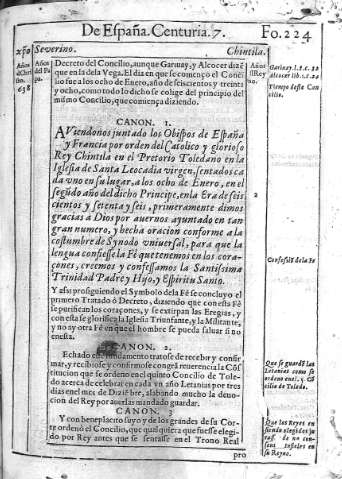 De España. Centuria. 7. Fo. 224
Severino. Chintila.
Decreto del Concilio, aunque Garivay, y Alcocer dizē
que en la de la Vega. El dia en que se començo el Conci
lio fue a los ocho de Enero, año de seiscientos y treinta
y ocho, como todo lo dicho se colige del principio del
mismo Concilio, que comiença diziendo.
CANON. 1.
AViendonos juntado los Obispos de España
y Francia por orden del Catolico y glorioso
Rey Chintila en el Pretorio Toledano en la
Iglesia de Santa Leocadia virgen, sentados ca
da vno en su lugar, a los ocho de Enero, en el
segūdo año del dicho Principe, en la Era de seis
cientos y setenta y seis, primeramente dimos
gracias a Dios por auernos ayuntado en tan
gran numero, y hecha oracion conforme a la
costumbre de Synodo vniuersal, para que la
lengua confesse la Fè que tenemos en los cora-
çones, creemos y confessamos la Santissima
Trinidad Padre, y Hijo, y Espiritu Santo.
Y assi prosiguiendo el Symbolo de la Fè se concluyo el
primero Tratado ò Decreto, diziendo que con esta Fè
se purifican los coraçones, y se extirpan las Eregias, y
con esta se glorifica la Iglesia Triunfante, y la Militante,
y no ay otra Fè en que el hombre se pueda saluar si no
en esta.
CANON. 2.
Echado este fundamento tratose de recebir y confir
mar, y recibiose y confirmose con grā reuerencia la Cōs
titucion que se ordeno en el quinto Concilio de Tole-
do acerca de celebrar en cada vn año Letanias por tres
dias en el mes de Diziēbre, alabando mucho la deuo-
cion del Rey por auerlas mandado guardar.
CANON. 3
Y con beneplacito suyo y de los grandes de su Cor-
te ordenò el Concilio, que qualquiera que fuesse elegi-
do por Rey antes que se sentasse en el Trono Real
pro
Años
del Pa
pa.
638
Años
del Rey
no.
2
Tiempo deste Con
cilio.
Confessiō de la Fè
Que se guardē las
Letanias como se
ordenò en el. 5. Cō
cilio de Toledo.
Que los Reyes en
siendo elegidos ju